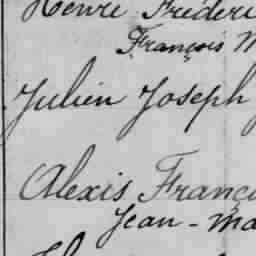 Henri Fréderi
François M
Julien Joseph
Alexis Franço
Jean-Ma